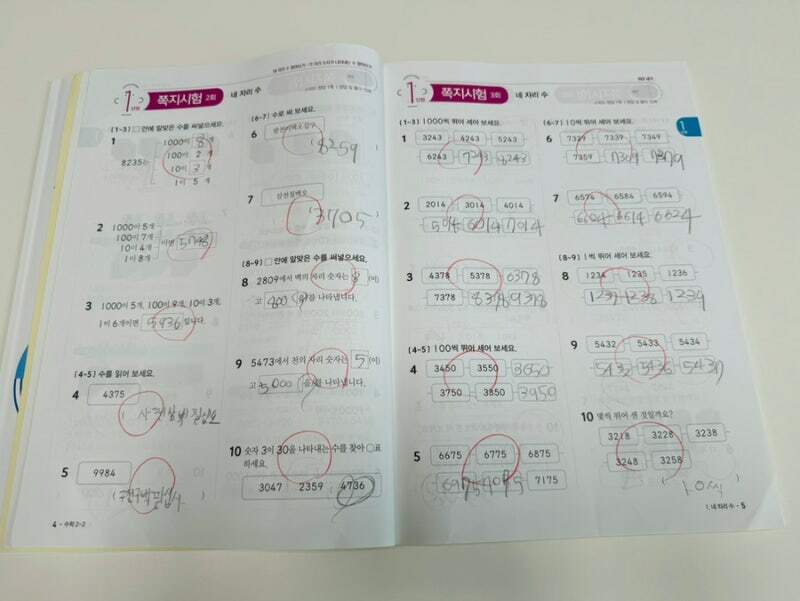 1
단원
쪽지시험 2회
네 자리 수
[1~3] □ 안에 알맞은 수를 써넣으세요.
1
8235는
1000이 8 개
100이 2 개
10이 3 개
1이 5 개
2
1000이 5개
100이 7개
10이 4개
1이 8개
이면 5748
3
1000이 5개, 100이 9개, 10이 3개,
1이 6개이면 5936 입니다.
[4~5] 수를 읽어 보세요.
4
4375
5
9984
4 - 수학 2-2
[6~7] 수로 써 보세요.
6
( 8259 )
7
삼천칠백오
( 3705 )
[8~9] □ 안에 알맞은 수를 써넣으세요.
8
2809에서 백의 자리 숫자는 8 (이)
고 800 을 나타냅니다.
9
5473에서 천의 자리 숫자는 5 (이)
고 5000 을 나타냅니다.
10 숫자 3이 30을 나타내는 수를 찾아 ○표
하세요.
3047 2359 4736
1
단원
쪽지시험 3회
네 자리 수
[1~3] 1000씩 뛰어 세어 보세요.
1
3243 4243 5243
6243 7243 8243
2
2014 3014 4014
6014 7014
3
4378 5378 6378
7378 8378 9378
[4~5] 100씩 뛰어 세어 보세요.
4
3450 3550 3650
3750 3850 3950
5
6675 6775 6875
6975 7175
[6~7] 10씩 뛰어 세어 보세요.
6
7329 7339 7349
7359 7369 7379
7
6574 6584 6594
6604 6614 6624
[8~9] 1씩 뛰어 세어 보세요.
8
1234 1235 1236
1237 1238
9
5432 5433 5434
5436
10 몇씩 뛰어 센 것일까요?
3218 3228 3238
3248 3258
( 10씩 )
1. 네 자리 수 - 5